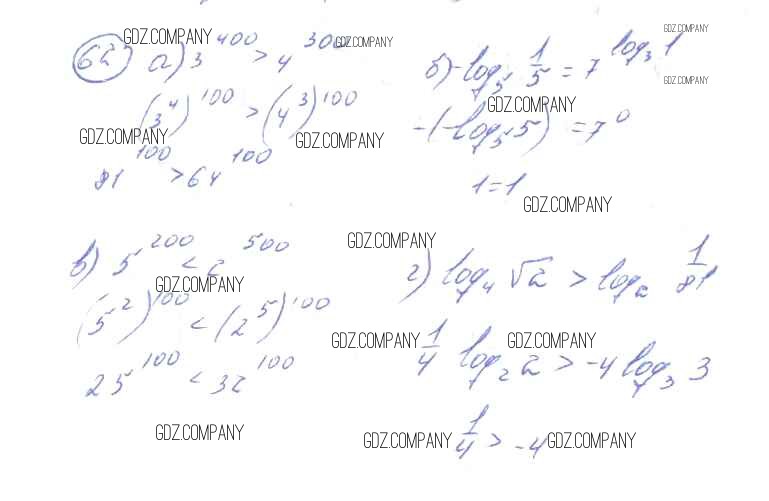 GDZ.COMPANY
62 а) 3^400 > 4^300
GDZ.COMPANY
(3^4)^100 > (4^3)^100
GDZ.COMPANY GDZ.COMPANY
81^100 > 64^100
GDZ.COMPANY
б) -log_5 1/5 = 7^log_3 1
GDZ.COMPANY
GDZ.COMPANY
-(-log_5 5) = 7^0
1 = 1
GDZ.COMPANY
в) 5^200 < 2^500
GDZ.COMPANY
(5^2)^100 < (2^5)^100
25^100 < 32^100
GDZ.COMPANY
GDZ.COMPANY
г) log_4 √2 > log_2 1/81
GDZ.COMPANY GDZ.COMPANY
1/4 log_2 2 > -4 log_3 3
GDZ.COMPANY 1/4 > -4 GDZ.COMPANY